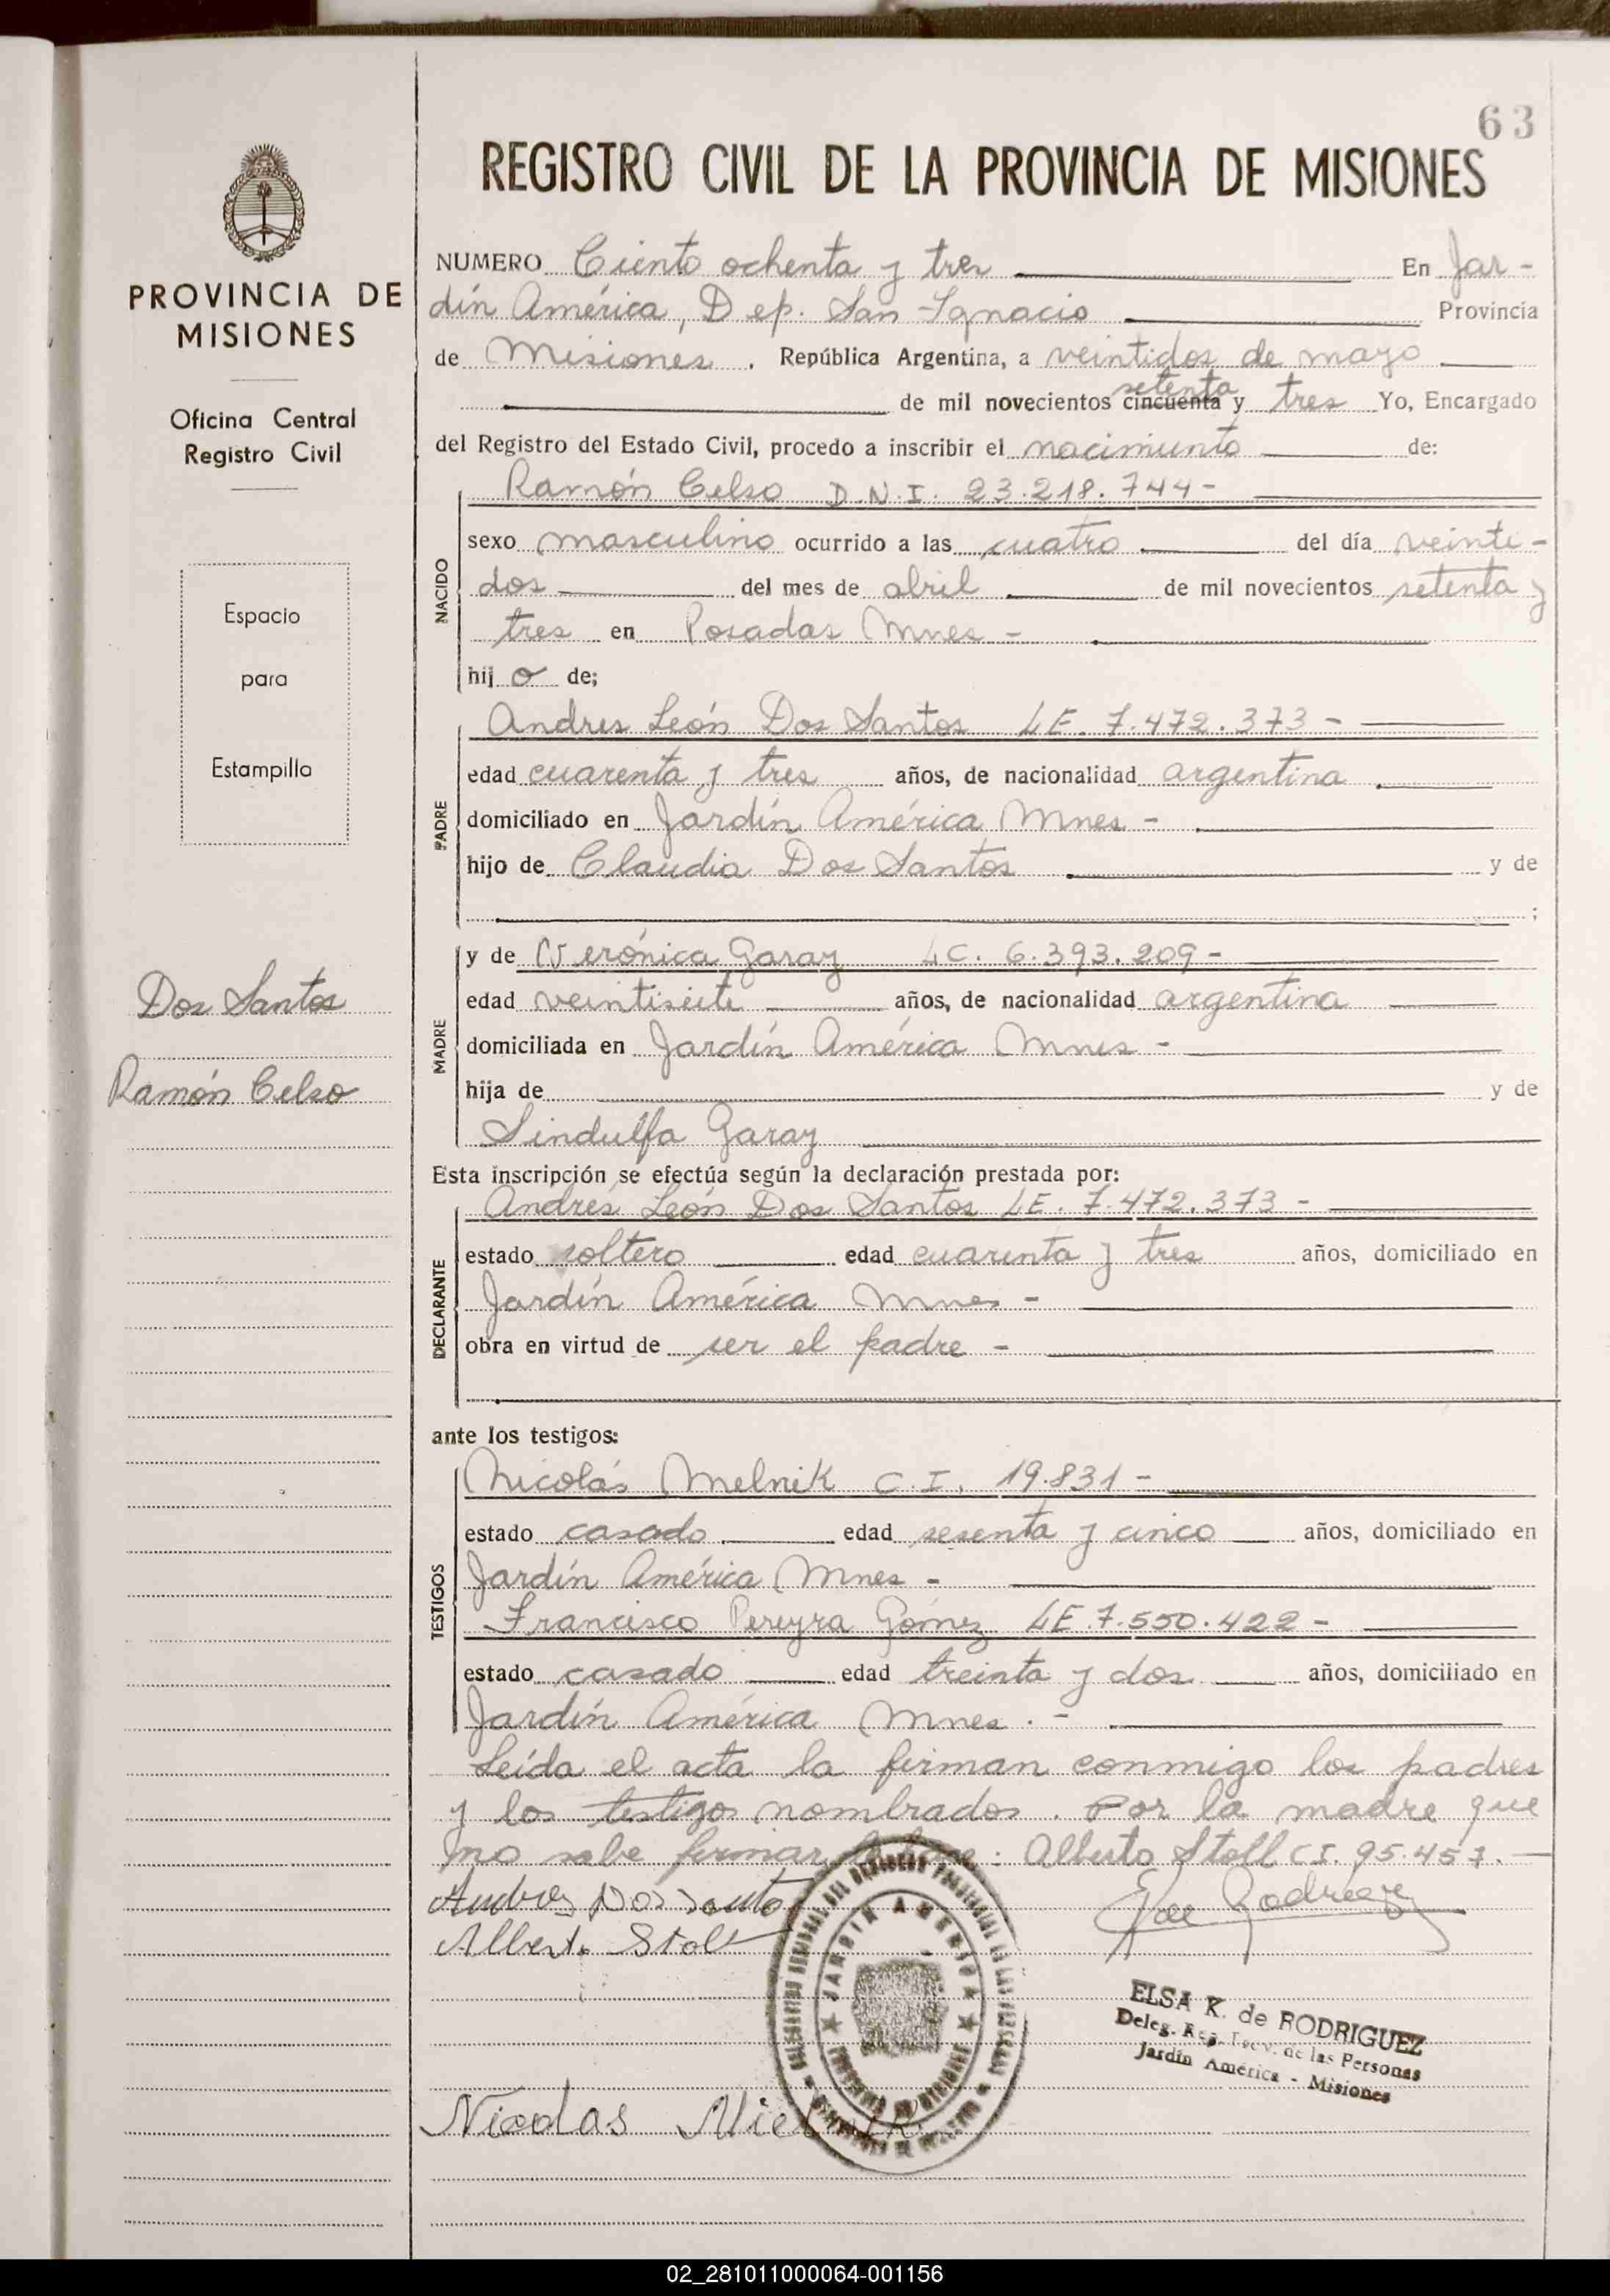 63
REGISTRO CIVIL DE LA PROVINCIA DE MISIONES
PROVINCIA DE
MISIONES
Oficina Central
Registro Civil
Espacio
para
Estampilla
Dos Santos
Ramón Celso
NUMERO Ciento ochenta y tres En Jar-
dín América, Dep. San Ignacio Provincia
de Misiones. República Argentina, a veintidos de mayo
setenta
de mil novecientos cincuenta y tres Yo, Encargado
del Registro del Estado Civil, procedo a inscribir el nacimiento de:
Ramón Celso D.N.I. 23.218.744-
NACIDO
sexo masculino ocurrido a las cuatro del día veinti-
dos del mes de abril de mil novecientos setenta y
tres en Posadas Mnes-
hij o de;
PADRE
Andres León Dos Santos LE. 7.472.373-
edad cuarenta y tres años, de nacionalidad argentina
domiciliado en Jardín América Mnes-
hijo de Claudia Dos Santos y de
;
MADRE
y de Verónica Garay LC. 6.393.209-
edad veintisiete años, de nacionalidad argentina
domiciliada en Jardín América Mnes-
hija de y de
Sindulfa Garay
Esta inscripción se efectúa según la declaración prestada por:
DECLARANTE
Andrés León Dos Santos LE. 7.472.373-
estado soltero edad cuarenta y tres años, domiciliado en
Jardín América Mnes-
obra en virtud de ser el padre-
ante los testigos:
TESTIGOS
Nicolás Melnik C.I. 19.831-
estado casado edad sesenta y cinco años, domiciliado en
Jardín América Mnes-
Francisco Pereyra Gómez LE 7.550.422-
estado casado edad treinta y dos años, domiciliado en
Jardín América Mnes.-
Leída el acta la firman conmigo los padres
y los testigos nombrados. Por la madre que
no sabe firmar lo hace: Alberto Stoll CI. 95.457.-
Andres Dos Santo
Alberto Stoll
JARDIN AMERICA
ELSA K. de RODRIGUEZ
Deleg. Reg. de las Personas
Jardín América - Misiones
Nicolas
02_281011000064-001156